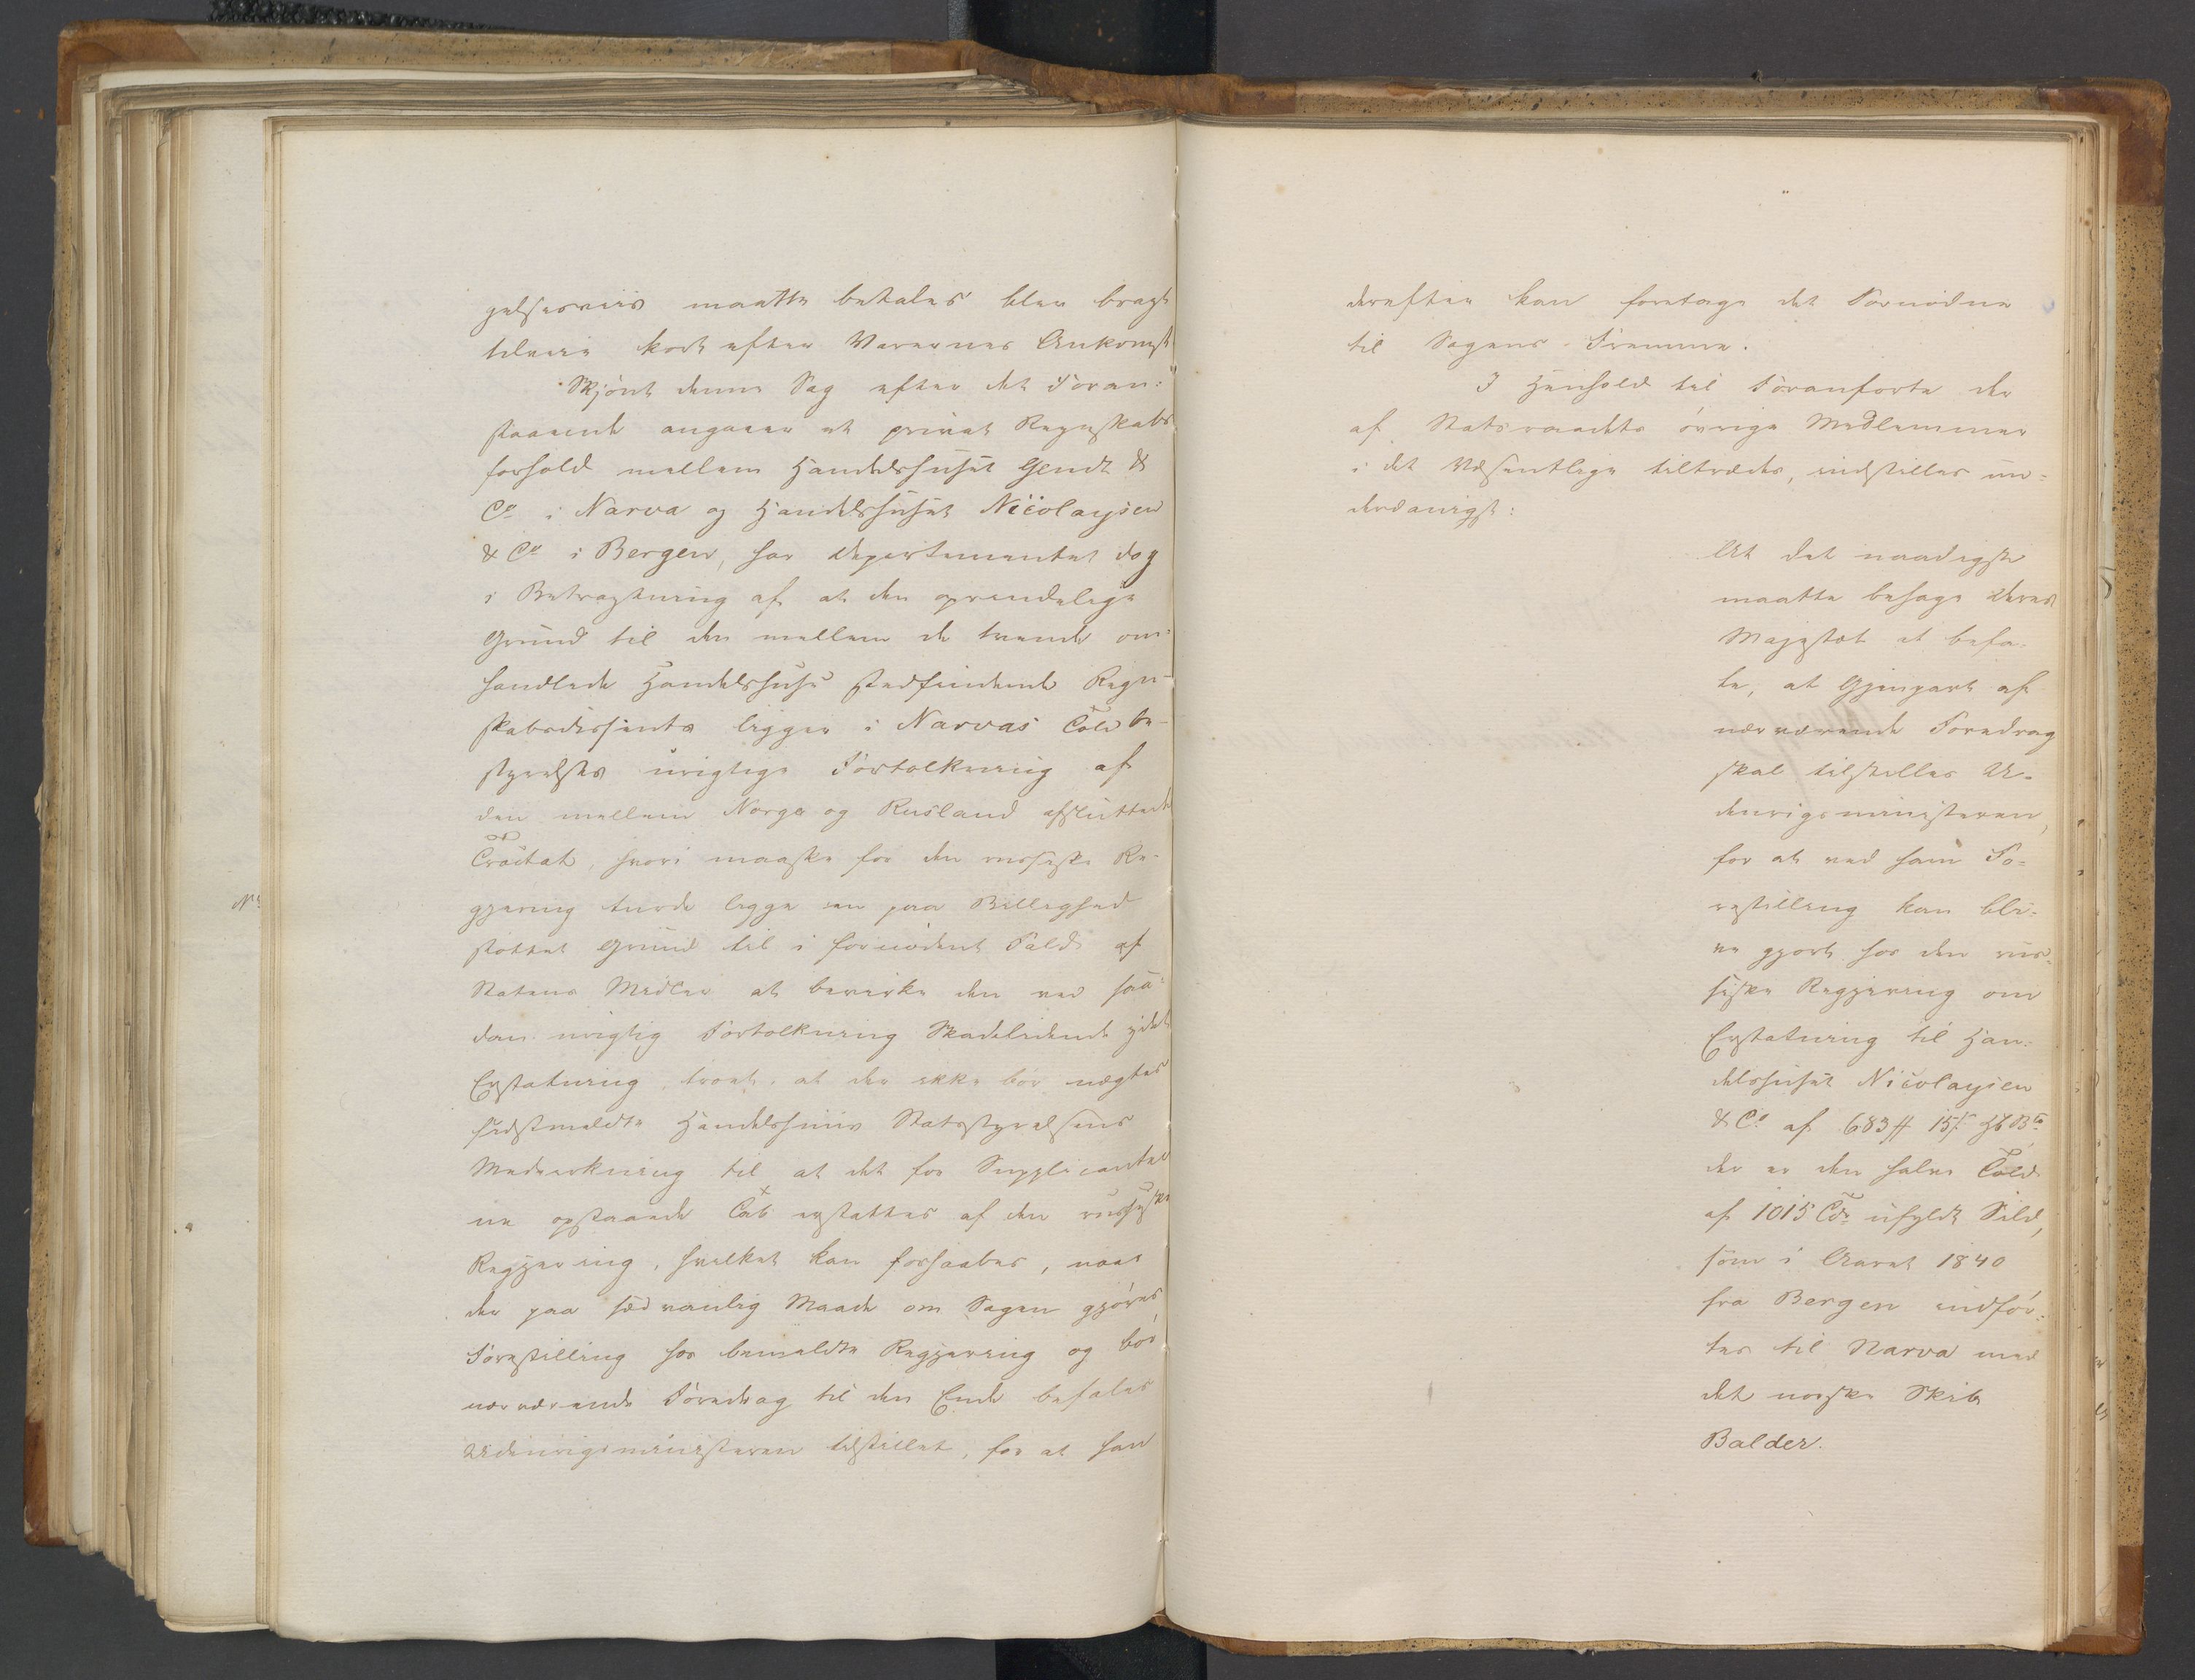 gelsesviis maatte betales blev bragt
tilveie kort efter Varernes Ankomst
Skjönt denne Sag efter det Foran-
staaende angaaer et privat Regnskabs
forhold mellem Handelshuset Gendt &
Co i Narva og Handelshuset Nicolaysen
& Co i Bergen, har Departementet dog
i Betragtning af at den oprindelige
Grund til den mellem de tvende om-
handlede Handelshuse stedfindende Regn-
skabsdissents ligger i Narvas Told be-
styrelses urigtige Fortolkning af
den mellem Norge og Rusland afsluttede
Tractat, hvori maaske for den russiske Re-
gjering turde ligge en paa Billighed
støttet Grund til i fornödent Fald af
Statens Midler at bevirke den ved saa-
dan urigtig Fortolkning Skadelidende ydet
Erstatning, troet, at der ikke bör nægtes
sidstmeldte Handelshuus Statsstyrelsens
Medvirkning til at det for Supplicanter
ne opstaaede Tab erstattes af den russiske
Regjering, hvilket kan forhaabes, naar
der paa sædvanlig Maade om Sagen gjöres
Forestilling hos bemeldte Regjering og bör
nærværende Foredrag til den Ende befales
Udenrigsministeren tilstillet, for at han
No
derefter kan foretage det Fornödne
til Sagens Fremme.
I Henhold til Foranförte der
af Statsraadets övrige Medlemmer
i det Væsentlige tiltrædes, indstilles un-
derdanigst:
At det naadigst
maatte behage Deres
Majestæt at befa-
le, at Gjenpart af
nærværende Foredrag
skal tilstilles U-
denrigsministeren,
for at ved ham Fo-
restilling kan bli-
ve gjort hos den rus-
siske Regjering om
Erstatning til Han-
delshuset Nicolaysen
& Co af 683 15 Hb Bco
der er den halve Told
af 1015 Tdr ufyldt Sild,
som i Aaret 1840
fra Bergen indför-
tes til Narva med
det norske Skib
Balder.